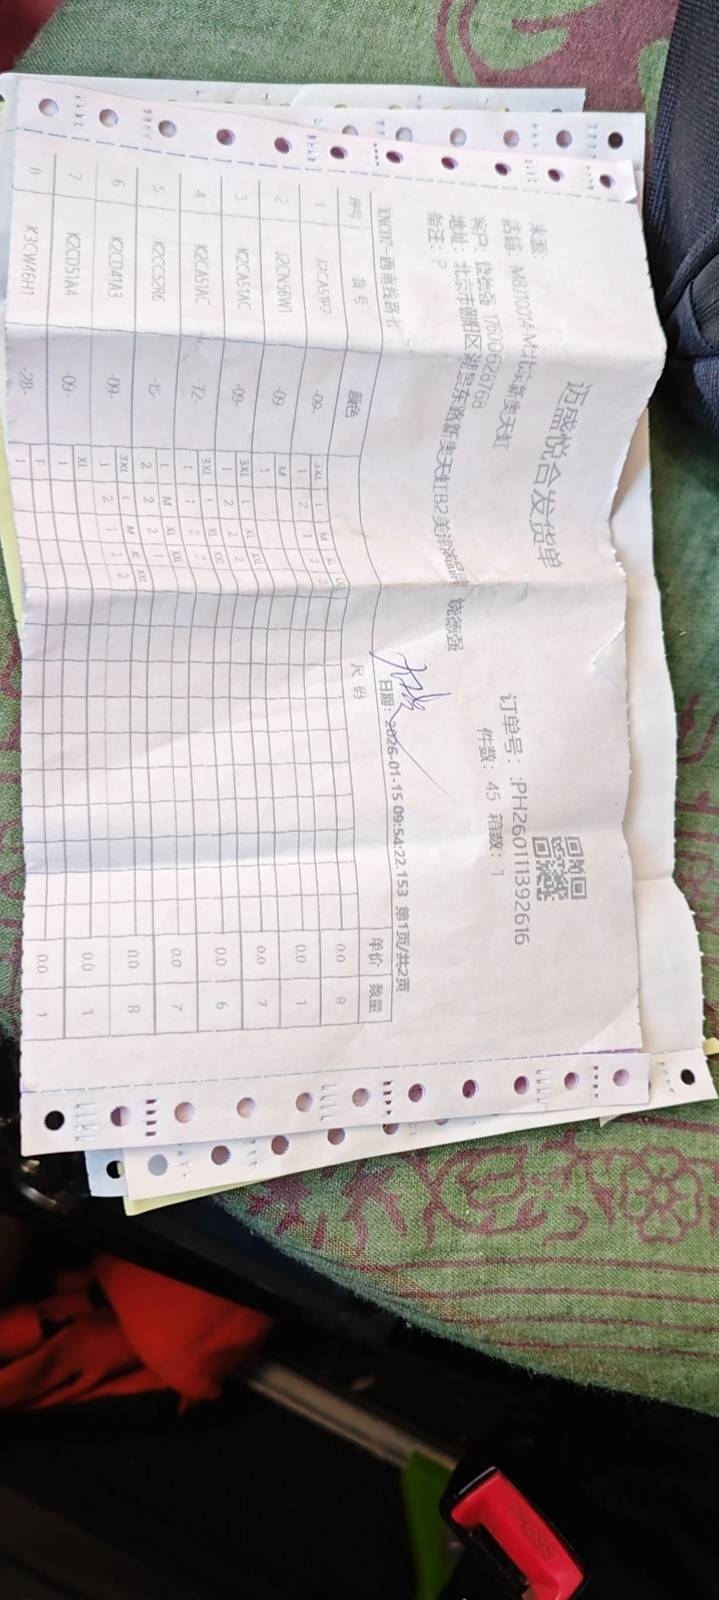 迈盛悦合发货单
来源:
店铺: MBJ10014-M北京新奥天虹
订单号: :PH260111392616
客户: 饶德强 17800628768
件数: 45 箱数: 1
地址: 北京市朝阳区湖景东路新奥天虹B2美 饶德强
备注: P
XNC07-西南线路卡
日期: 2026-01-15 09:54:22.153 第1页/共2页
序号 货号 颜色 尺码 单价 数量
1 J2CA51P2 -09- 3XL L M XL 0.0 8
1 2 1 2 2
2 J2CN56W1 -09- M 0.0 1
1
3 K2CA51AC -09- 3XL L XL XXL 0.0 7
1 2 2 2
4 K2CA51AC -72- 3XL L XL XXL 0.0 6
1 1 2 2
5 K2CC52R6 -15- L M XL XXL 0.0 7
2 2 2 1
6 K2CD41A3 -09- 3XL L M XL XXL 0.0 8
1 2 1 2 2
7 K2CD51A4 -09- XL 0.0 1
1
8 K3CW46H1 -28- F 0.0 1
1
PRESS